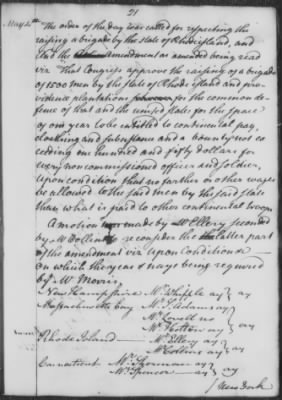 21
May 4th The order of the day was called for respecting the
raising a brigade by the State of Rhode island, and
and the amendment as amended being read
viz That Congress approve the raising of a brigade
of 1500 men by the State of Rhode island and pro-
vidence plantations for the common de-
fence of that and the united states for the space
of one year to be entitled to continental pay,
cloathing and subsistence and a bounty not ex
ceeding one hundred and fifty dollars for
every noncommissioned officer and soldier,
Upon condition that no farther or other wages
be allowed to the said men by the said state
than what is paid to other continental troops
A motion was made by Mr Ellery seconded
by Mr Collins to reconsider the latter part
of the amendment viz Upon condition &c
On which the yeas & nays being required
by Mr Morris
New Hampshire Mr Whipple ay } ay
Massachusetts bay Mr S Adams ay
Mr Lovell no } ay
Mr Holten ay
Rhode Island Mr Ellery ay
Mr Collins ay } ay
Connecticut Mr Sherman ay
Mr Spencer ay } ay
New York